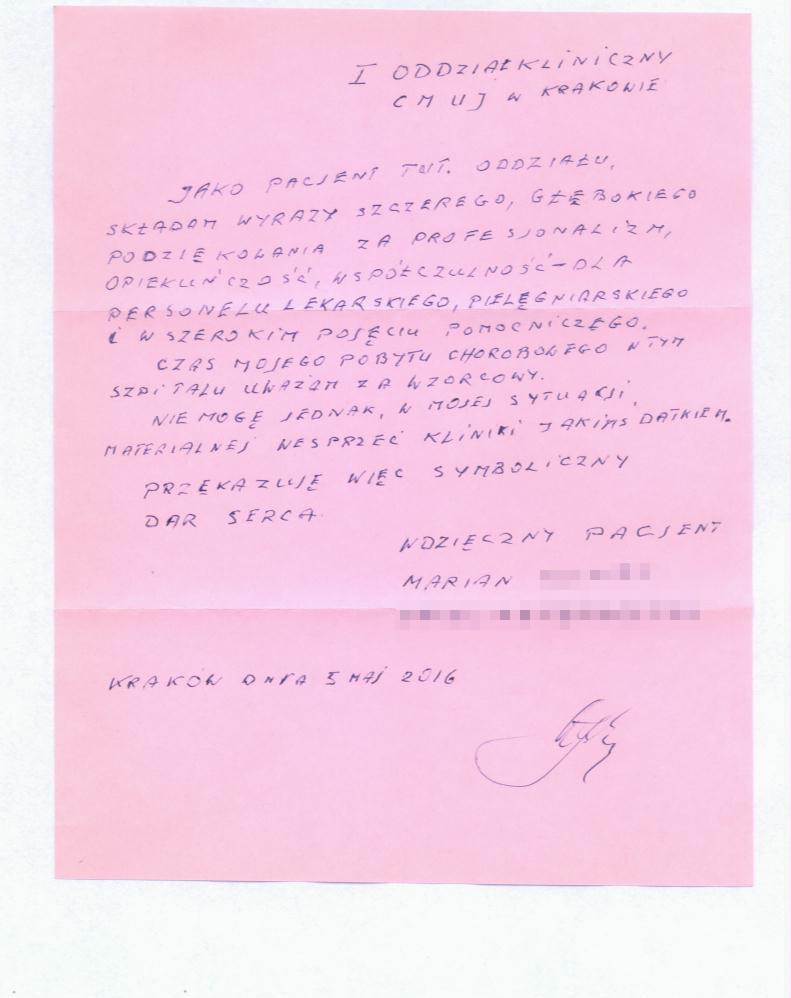 I ODDZIAŁ KLINICZNY
CM UJ W KRAKOWIE
JAKO PACJENT TUT. ODDZIAŁU,
SKŁADAM WYRAZY SZCZEREGO, GŁĘBOKIEGO
PODZIĘKOWANIA ZA PROFESJONALIZM,
OPIEKUŃCZOŚĆ, WSPÓŁCZULNOŚĆ – DLA
PERSONELU LEKARSKIEGO, PIELĘGNIARSKIEGO
I W SZEROKIM POJĘCIU POMOCNICZEGO.
CZAS MOJEGO POBYTU CHOROBOWEGO W TYM
SZPITALU UWAŻAM ZA WZORCOWY.
NIE MOGĘ JEDNAK, W MOJEJ SYTUACJI,
MATERIALNEJ WESPRZEĆ KLINIKI JAKIMŚ DATKIEM.
PRZEKAZUJĘ WIĘC SYMBOLICZNY
DAR SERCA.
WDZIĘCZNY PACJENT
MARIAN
KRAKÓW DNIA 5 MAJ 2016